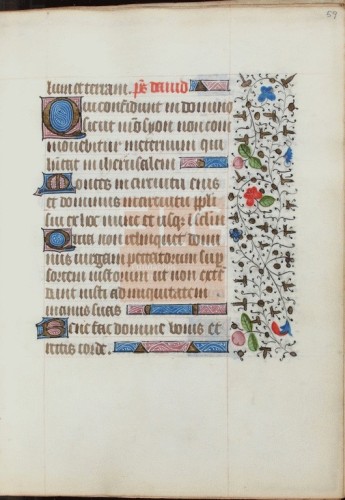 59
lum et terram. ps̄ david
Qui confidunt in domino
sicut mōs syon non com
movebitur in eternum qui
habitat in iherusalem
Montes in circuitu eius
et dominus in circuitu ppli
sui ex hoc nunc et usqz i seculm
Quia non relinquet domi
nus virgam peccatorum sup
sortem iustorum ut non extē
dant iusti ad iniquitatem
manus suas
Benefac domine bonis et
rectis corde.